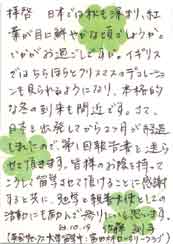 拝啓 日本では秋も深まり、紅
葉が目に鮮やかな頃でしょうか。
いかがお過ごしですか。イギリス
ではちらほらとクリスマスのデコレーション
を見られるようになり、本格的
な冬の到来も間近です。さて、
日本を出発してから2ヶ月が経過
しましたので、第1回報告書を送ら
せて頂きます。皆様のお陰を持って
こうして留学させて頂けることに感謝
すると共に、勉学と親善大使としての
活動にもあたって参りたいと思います。
22.10.19